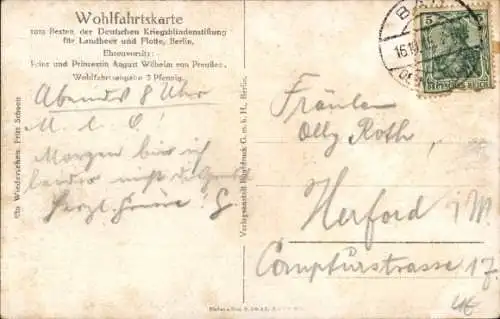 Wohlfahrtskarte
zum Besten der Deutschen Kriegsblindenstiftung
für Landheer und Flotte, Berlin.
Ehrenvorsitz:
Prinz und Prinzessin August Wilhelm von Preußen.
Wohlfahrtsabgabe 3 Pfennig.
Abends 8 Uhr
M. l. O!
Morgen bin ich
leider nicht
herzl. Grüße! G
Wiedersehen. Fritz Schoen
Verlagsanstalt G. m. b. H., Berlin.
5 5
DEUTSCHES REICH
Fräulein
Olly Roth,
Herford i/W.
Compturstrasse 17.
4€